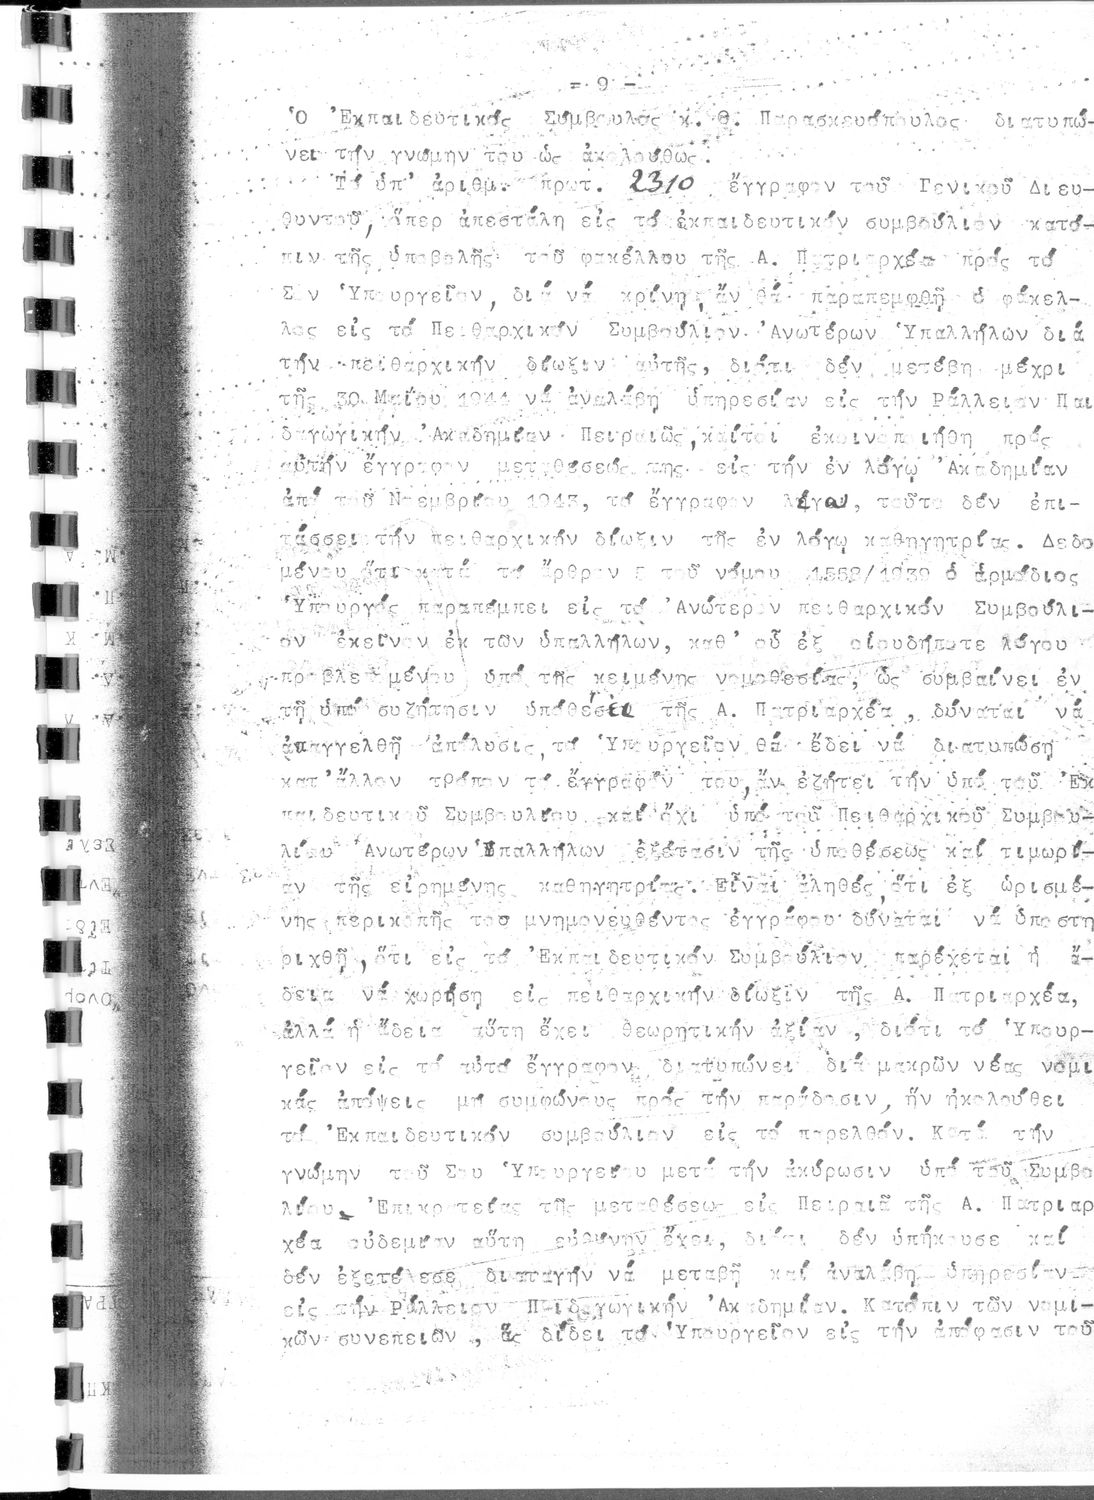 = 9 -
Ὁ Ἐκπαιδευτικός Σύμβουλος κ. Θ. Παρασκευόπουλος διατυπώ-
νει τήν γνώμην του ὡς ἀκολούθως.
Τό ὑπ' ἀριθμ. πρωτ. 2310 ἔγγραφον τοῦ Γενικοῦ Διευ-
θυντοῦ, ὅπερ ἀπεστάλη εἰς τό ἐκπαιδευτικόν συμβούλιον κατό-
πιν τῆς ὑποβολῆς τοῦ φακέλλου τῆς Α. Πατριαρχέα πρός τό
Σόν Ὑπουργεῖον, διά νά κρίνῃ, ἄν θά παραπεμφθῇ ὁ φάκελ-
λος εἰς τό Πειθαρχικόν Συμβούλιον Ἀνωτέρων Ὑπαλλήλων διά
τήν πειθαρχικήν δίωξιν αὐτῆς, διότι δέν μετέβη μέχρι
τῆς 30 Μαΐου 1944 νά ἀναλάβῃ ὑπηρεσίαν εἰς τήν Ράλλειον Παι
δαγωγικήν Ἀκαδημίαν Πειραιῶς, καίτοι ἐκοινοποιήθη πρός
αὐτήν ἔγγραφον μεταθέσεώς της εἰς τήν ἐν λόγῳ Ἀκαδημίαν
ἀπό τοῦ Νοεμβρίου 1943, τό ἔγγραφον λέγω, τοῦτο δέν ἐπι-
τάσσει τήν πειθαρχικήν δίωξιν τῆς ἐν λόγῳ καθηγητρίας. Δεδο
μένου ὅτι κατά τό ἄρθρον 5 τοῦ νόμου 1558/1939 ὁ ἁρμόδιος
Ὑπουργός παραπέμπει εἰς τό Ἀνώτερον πειθαρχικόν Συμβούλι-
ον ἐκεῖνον ἐκ τῶν ὑπαλλήλων, καθ' οὗ ἐξ οἱουδήποτε λόγου
προβλεπομένου ὑπό τῆς κειμένης νομοθεσίας, ὡς συμβαίνει ἐν
τῇ ὑπό συζήτησιν ὑποθέσει τῆς Α. Πατριαρχέα, δύναται νά
ἀπαγγελθῇ ἀπόλυσις, τό Ὑπουργεῖον θά ἔδει νά διατυπώσῃ
κατ' ἄλλον τρόπον τό ἔγγραφόν του, ἄν ἐζήτει τήν ὑπό τοῦ Ἐκ
παιδευτικοῦ Συμβουλίου καί ὄχι ὑπό τοῦ Πειθαρχικοῦ Συμβου-
λίου Ἀνωτέρων Ὑπαλλήλων ἐξέτασιν τῆς ὑποθέσεως καί τιμωρί-
αν τῆς εἰρημένης καθηγητρίας. Εἶναι ἀληθές, ὅτι ἐξ ὡρισμέ-
νης περικοπῆς του μνημονευθέντος ἐγγράφου δύναται νά ὑποστη
ριχθῇ, ὅτι εἰς τό Ἐκπαιδευτικόν Συμβούλιον παρέχεται ἡ ἄ-
δεια νά χωρήσῃ εἰς πειθαρχικήν δίωξιν τῆς Α. Πατριαρχέα,
ἀλλά ἡ ἄδεια αὕτη ἔχει θεωρητικήν ἀξίαν, διότι τό Ὑπουρ-
γεῖον εἰς τό αὐτό ἔγγραφον διατυπώνει διά μακρῶν νέας νομι
κάς ἀπόψεις μή συμφώνους πρός τήν παράδοσιν, ἥν ἠκολούθει
τό Ἐκπαιδευτικόν συμβούλιον εἰς τό παρελθόν. Κατά τήν
γνώμην τοῦ Σου Ὑπουργείου μετά τήν ἀκύρωσιν ὑπό τοῦ Συμβο
λίου Ἐπικρατείας τῆς μεταθέσεως εἰς Πειραιᾶ τῆς Α. Πατριαρ
χέα οὐδεμίαν αὕτη εὐθύνην ἔχει, διότι δέν ὑπήκουσε καί
δέν ἐξετέλεσε διαταγήν νά μεταβῇ καί ἀναλάβῃ ὑπηρεσίαν
εἰς τήν Ράλλειον Παιδαγωγικήν Ἀκαδημίαν. Κατόπιν τῶν νομι-
κῶν συνεπειῶν, ἅς δίδει τό Ὑπουργεῖον εἰς τήν ἀπόφασιν τοῦ